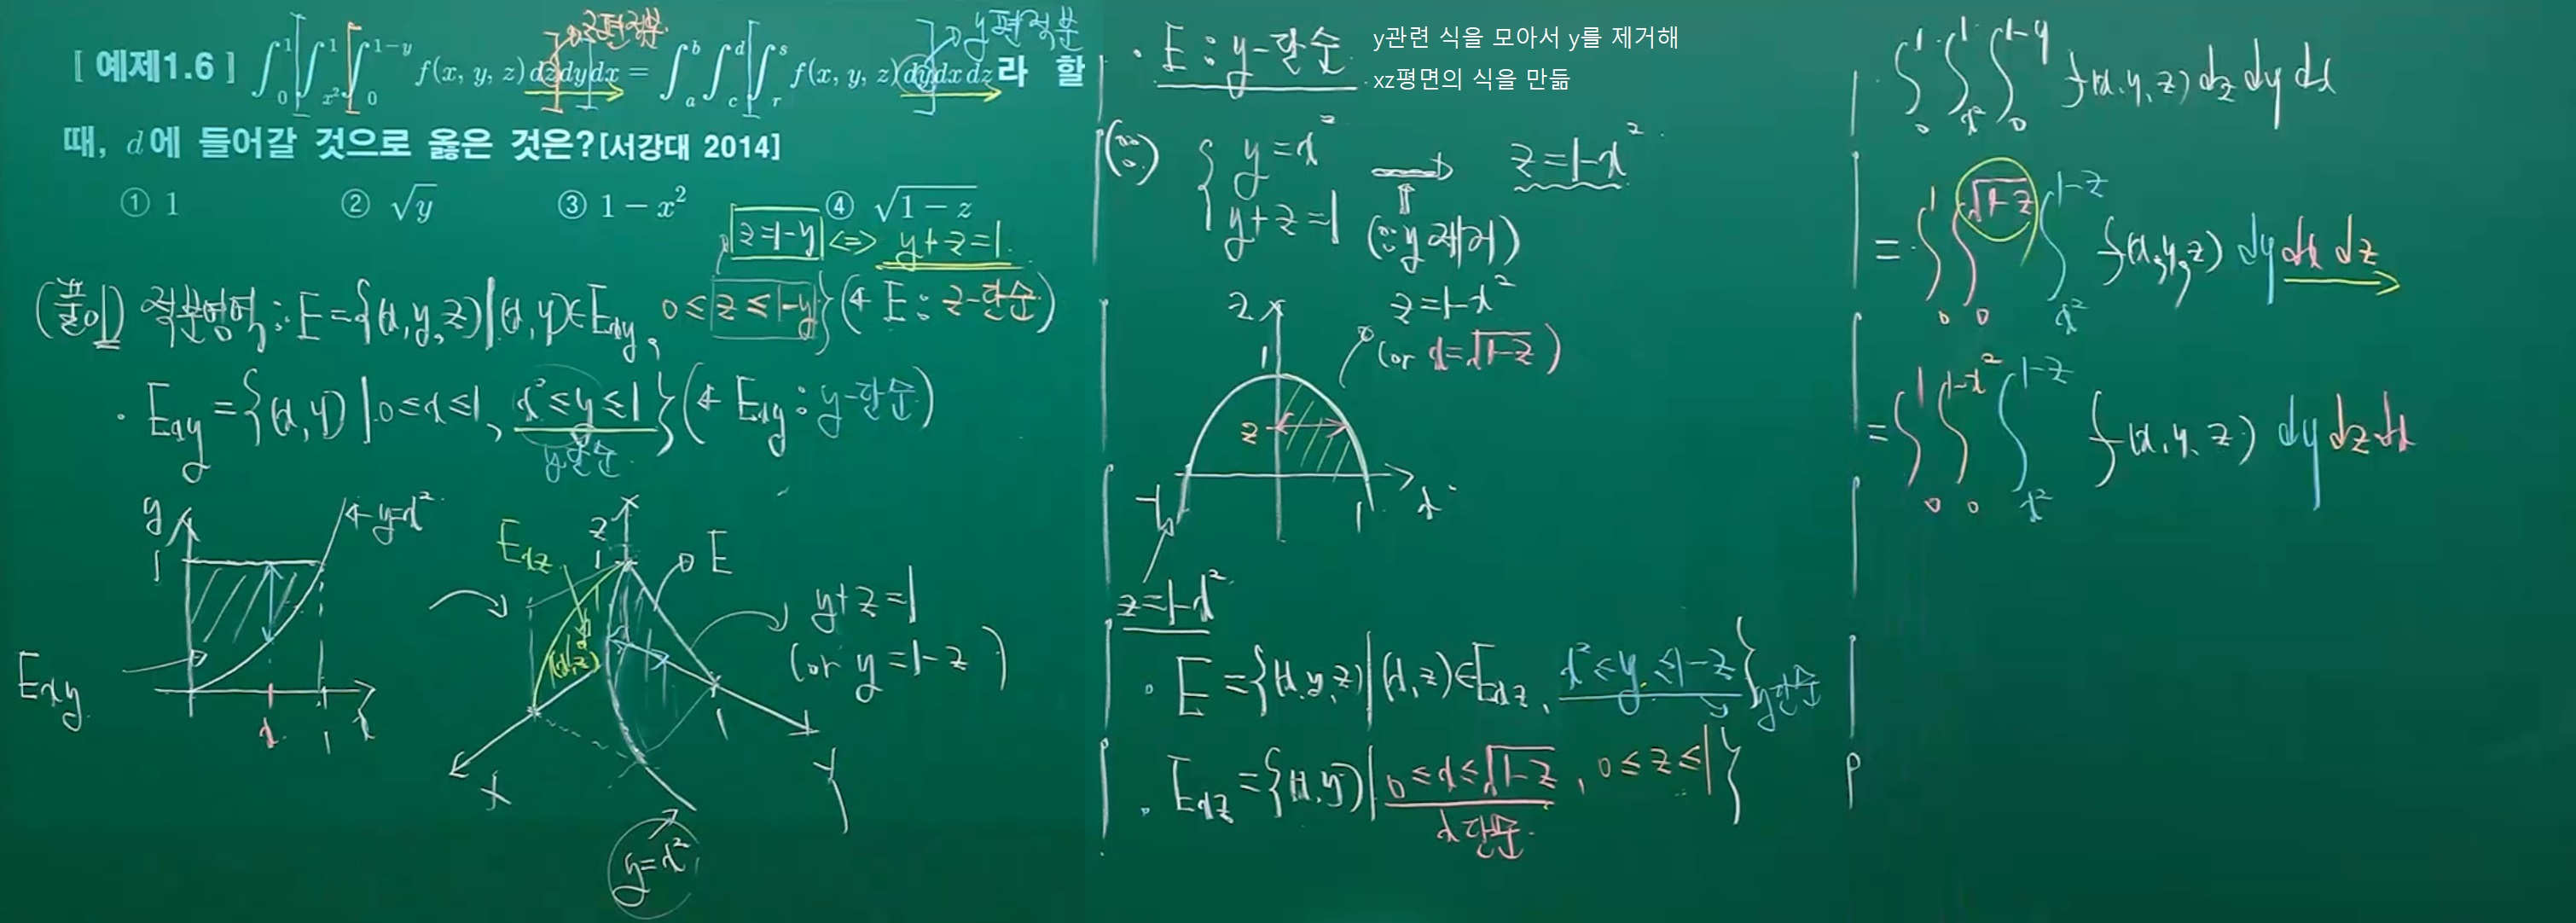 [ 예제1.6 ] ∫₀¹ ∫ₓ²¹ ∫₀^{1-y} f(x, y, z) dz dy dx = ∫ₐᵇ ∫_c^d ∫_r^s f(x, y, z) dy dx dz 라 할
z편적분
y편적분
때, d에 들어갈 것으로 옳은 것은?[서강대 2014]
① 1 ② √y ③ 1 - x² ④ √(1 - z)
z=1-y <=> y+z=1.
(풀이) 적분영역: E={(x,y,z)|(x,y)∈Exy, 0≤z≤1-y} (← E: z-단순)
· Exy={(x,y)|0≤x≤1, x²≤y≤1} (← Exy: y-단순)
y단순.
y
1
← y=x²
Exy
x
1
x
Exz
z
1
E
(x,z)
y+z=1
(or y=1-z)
1
X
Y
y=x²
· E: y-단순
y관련 식을 모아서 y를 제거해
xz평면의 식을 만듦
(∵) { y=x²
y+z=1
⇒ z=1-x².
(∵y제거)
z
1
z
-1
1
x
z=1-x²
(or x=√(1-z))
z=1-x²
· E={(x,y,z)|(x,z)∈Exz, x²≤y≤1-z} y단순
· Exz={(x,y)|0≤x≤√(1-z), 0≤z≤1}
x단순.
· ∫₀¹ ∫ₓ²¹ ∫₀^{1-y} f(x,y,z) dz dy dx
= ∫₀¹ ∫₀^{√(1-z)} ∫ₓ²^{1-z} f(x,y,z) dy dx dz
= ∫₀¹ ∫₀^{1-x²} ∫ₓ²^{1-z} f(x,y,z) dy dz dx